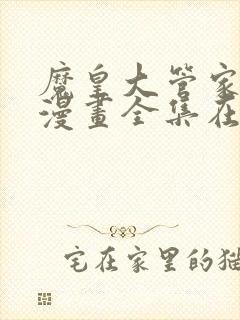 魔皇大管家
漫畫全集在
宅在家里的猫